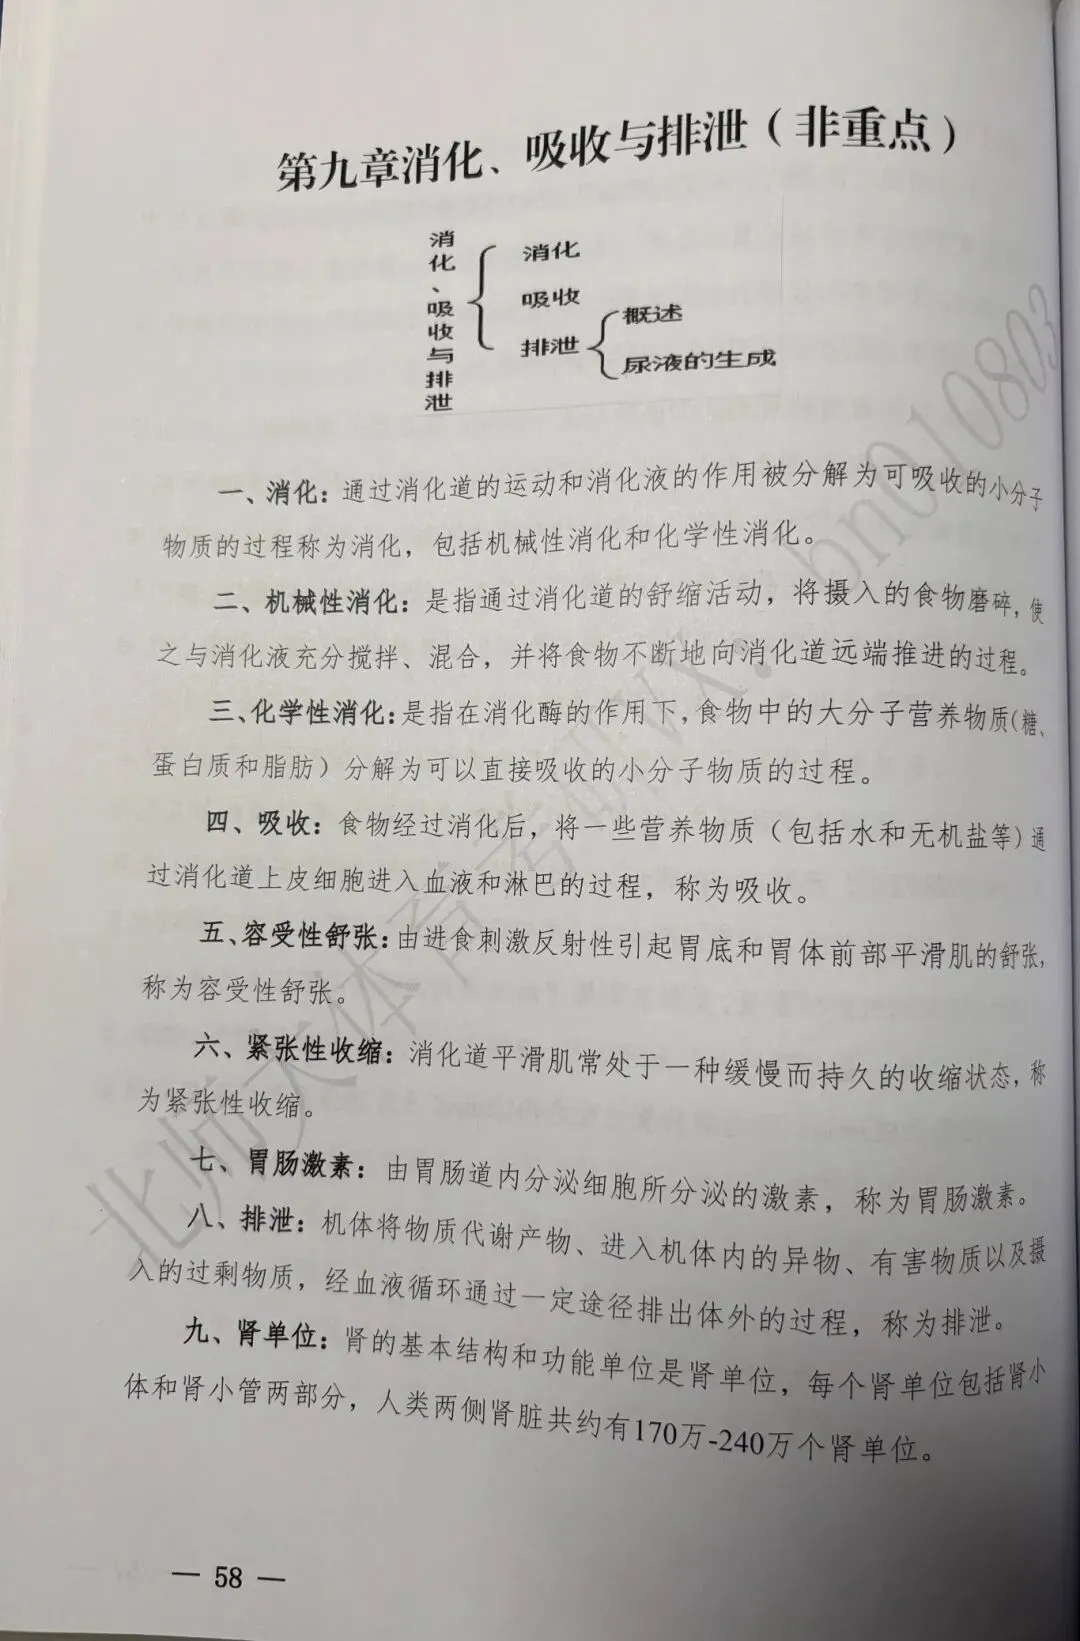 第九章消化、吸收与排泄（非重点）
消化、吸收与排泄
消化
吸收
排泄
概述
尿液的生成
一、消化：通过消化道的运动和消化液的作用被分解为可吸收的小分子
物质的过程称为消化，包括机械性消化和化学性消化。
二、机械性消化：是指通过消化道的舒缩活动，将摄入的食物磨碎，使
之与消化液充分搅拌、混合，并将食物不断地向消化道远端推进的过程。
三、化学性消化：是指在消化酶的作用下，食物中的大分子营养物质（糖、
蛋白质和脂肪）分解为可以直接吸收的小分子物质的过程。
四、吸收：食物经过消化后，将一些营养物质（包括水和无机盐等）通
过消化道上皮细胞进入血液和淋巴的过程，称为吸收。
五、容受性舒张：由进食刺激反射性引起胃底和胃体前部平滑肌的舒张，
称为容受性舒张。
六、紧张性收缩：消化道平滑肌常处于一种缓慢而持久的收缩状态，称
为紧张性收缩。
七、胃肠激素：由胃肠道内分泌细胞所分泌的激素，称为胃肠激素。
八、排泄：机体将物质代谢产物、进入机体内的异物、有害物质以及摄
入的过剩物质，经血液循环通过一定途径排出体外的过程，称为排泄。
九、肾单位：肾的基本结构和功能单位是肾单位，每个肾单位包括肾小
体和肾小管两部分，人类两侧肾脏共约有170万-240万个肾单位。
— 58 —
北师大体育考研vx：bn010803